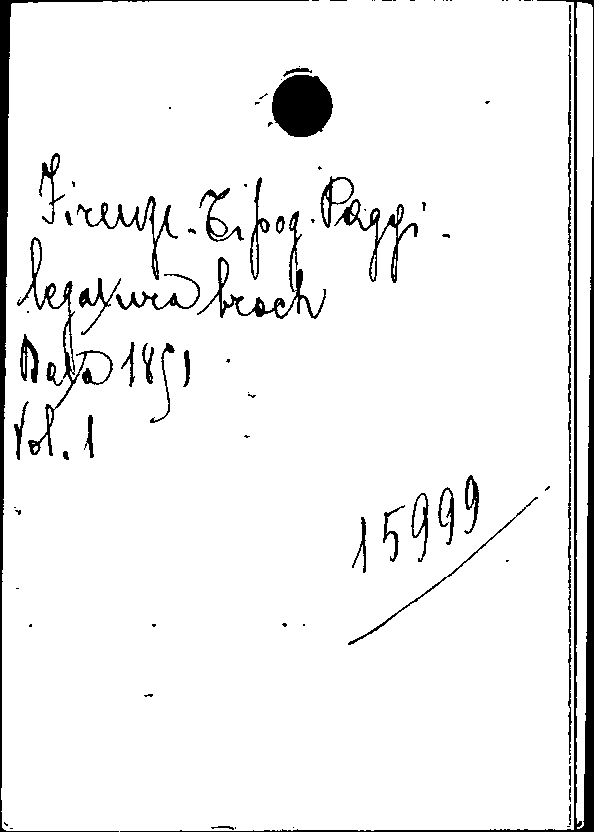 Firenze. Tipog. Paggi.
legatura broch
Data 1851
Vol. 1
15999